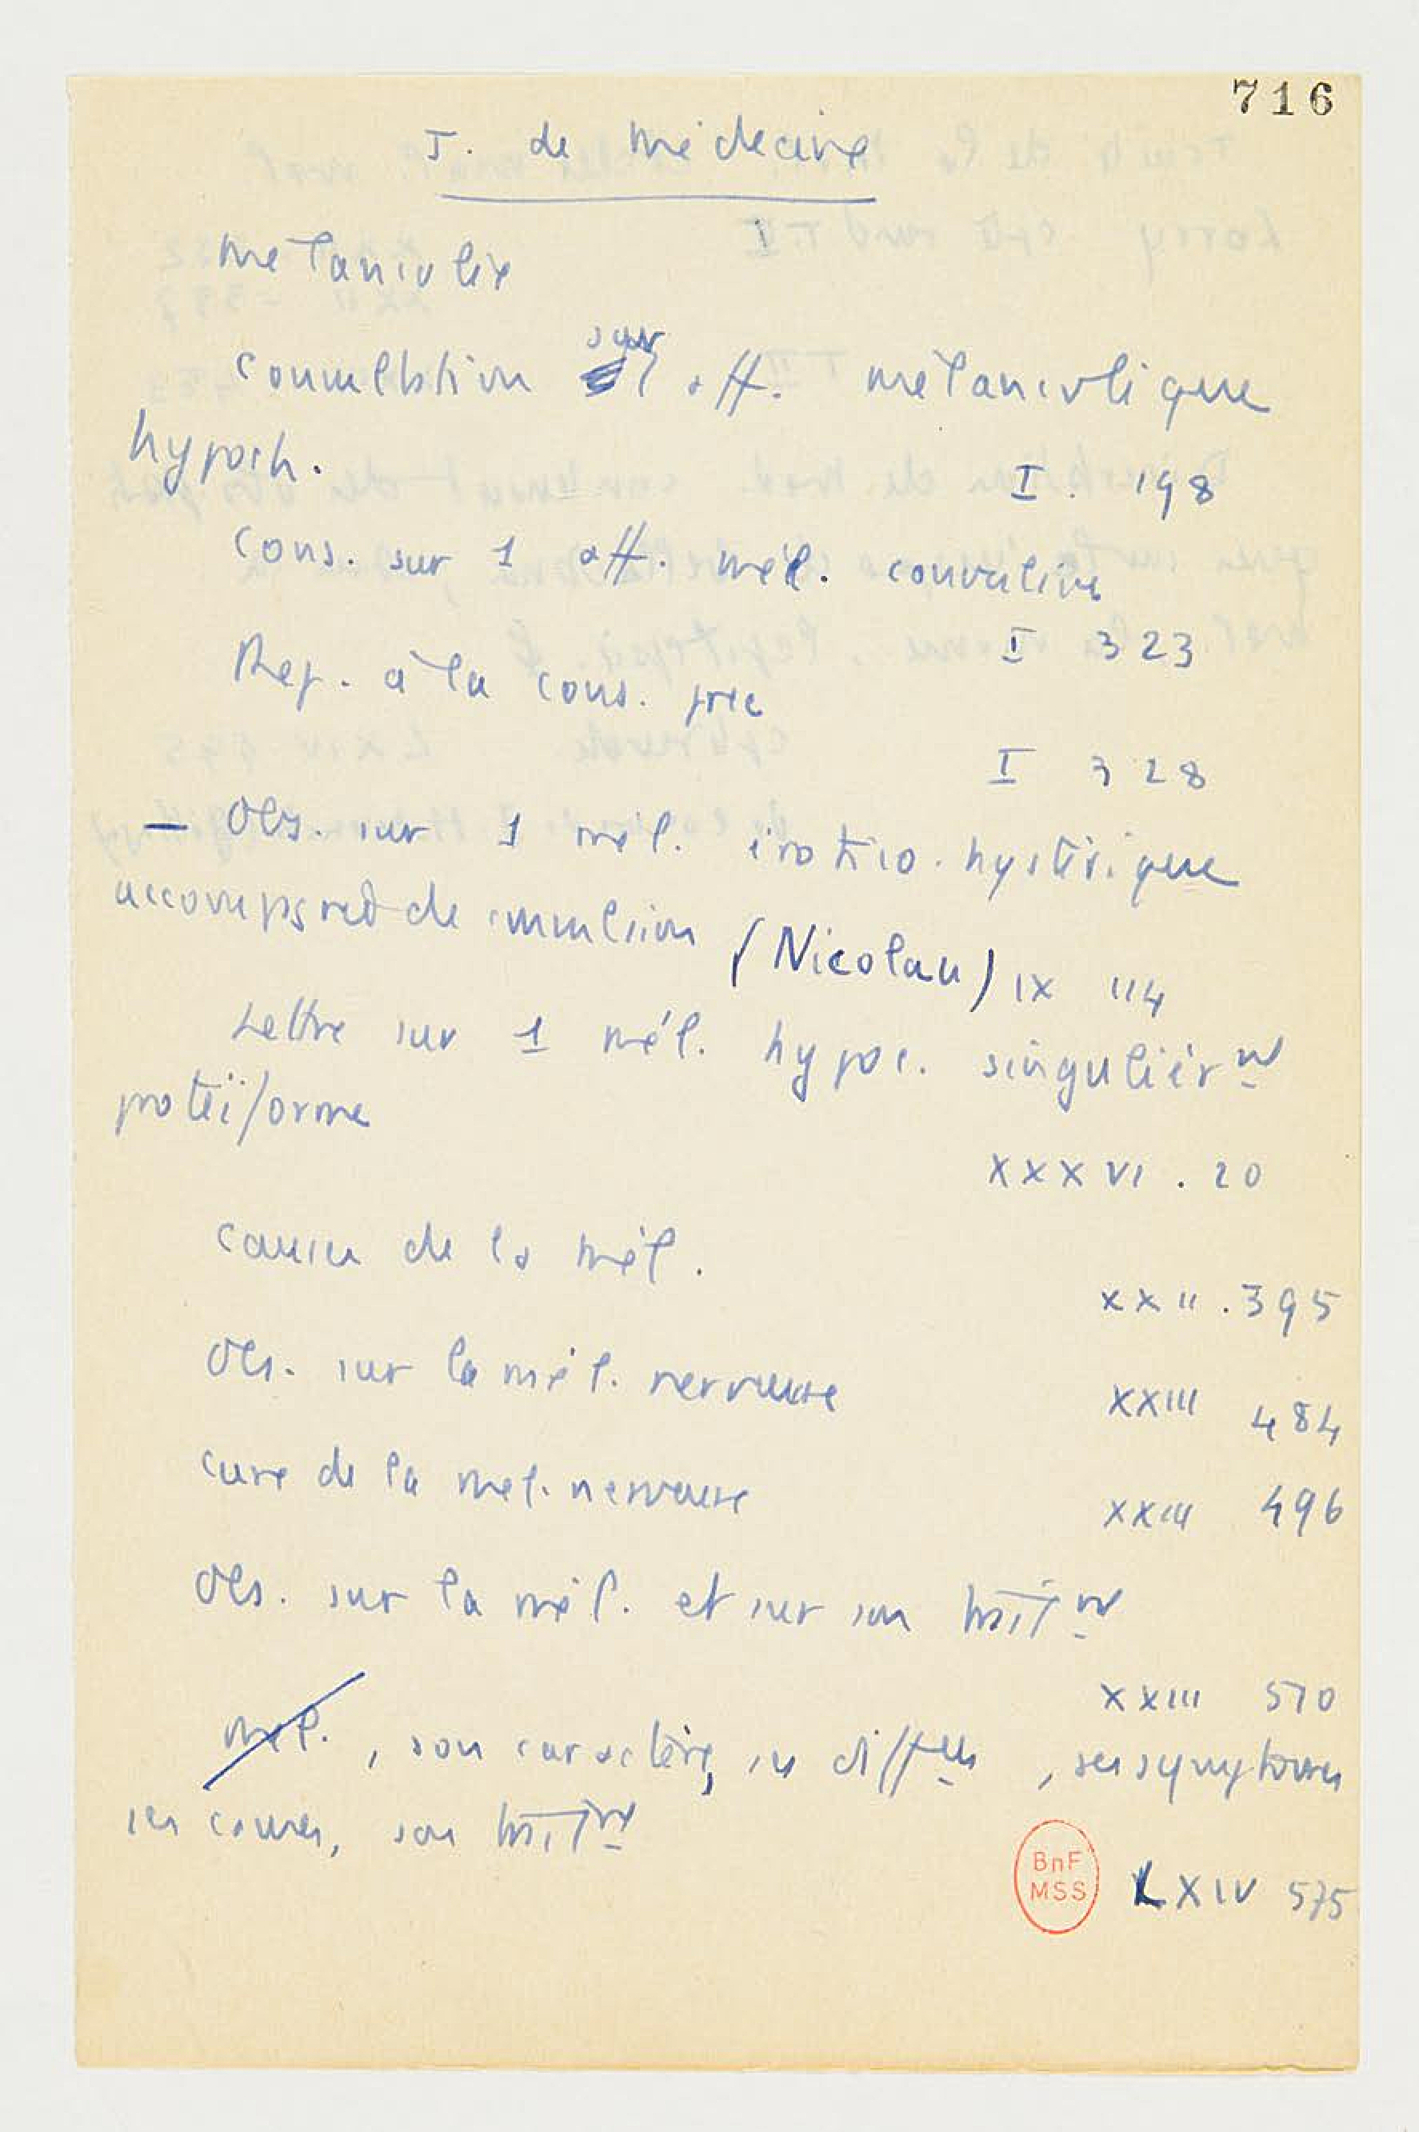 716
J. de Médecine
Mélancolie
Consultation sur 1 aff. mélancolique
hypoch.
I. 198
Cons. sur 1 aff. mél. convulsive
I 323
Rep. à la cons. prec
I 328
— Obs. sur 1 mél. érotico. hystérique
accompagnée de convulsion (Nicolau) IX 114
Lettre sur 1 mél. hypoc. singulièrnt
protéiforme
XXXVI. 20
Causes de la mél.
XXII. 395
Obs. sur la mél. nerveuse XXIII 484
Cure de la mel. nerveuse XXIII 496
Obs. sur la mél. et sur son traitnt
XXIII 510
mél. , son caractère, ses , ses symptomes
ses causes, son traitnt
BnF
MSS
LXIV 575